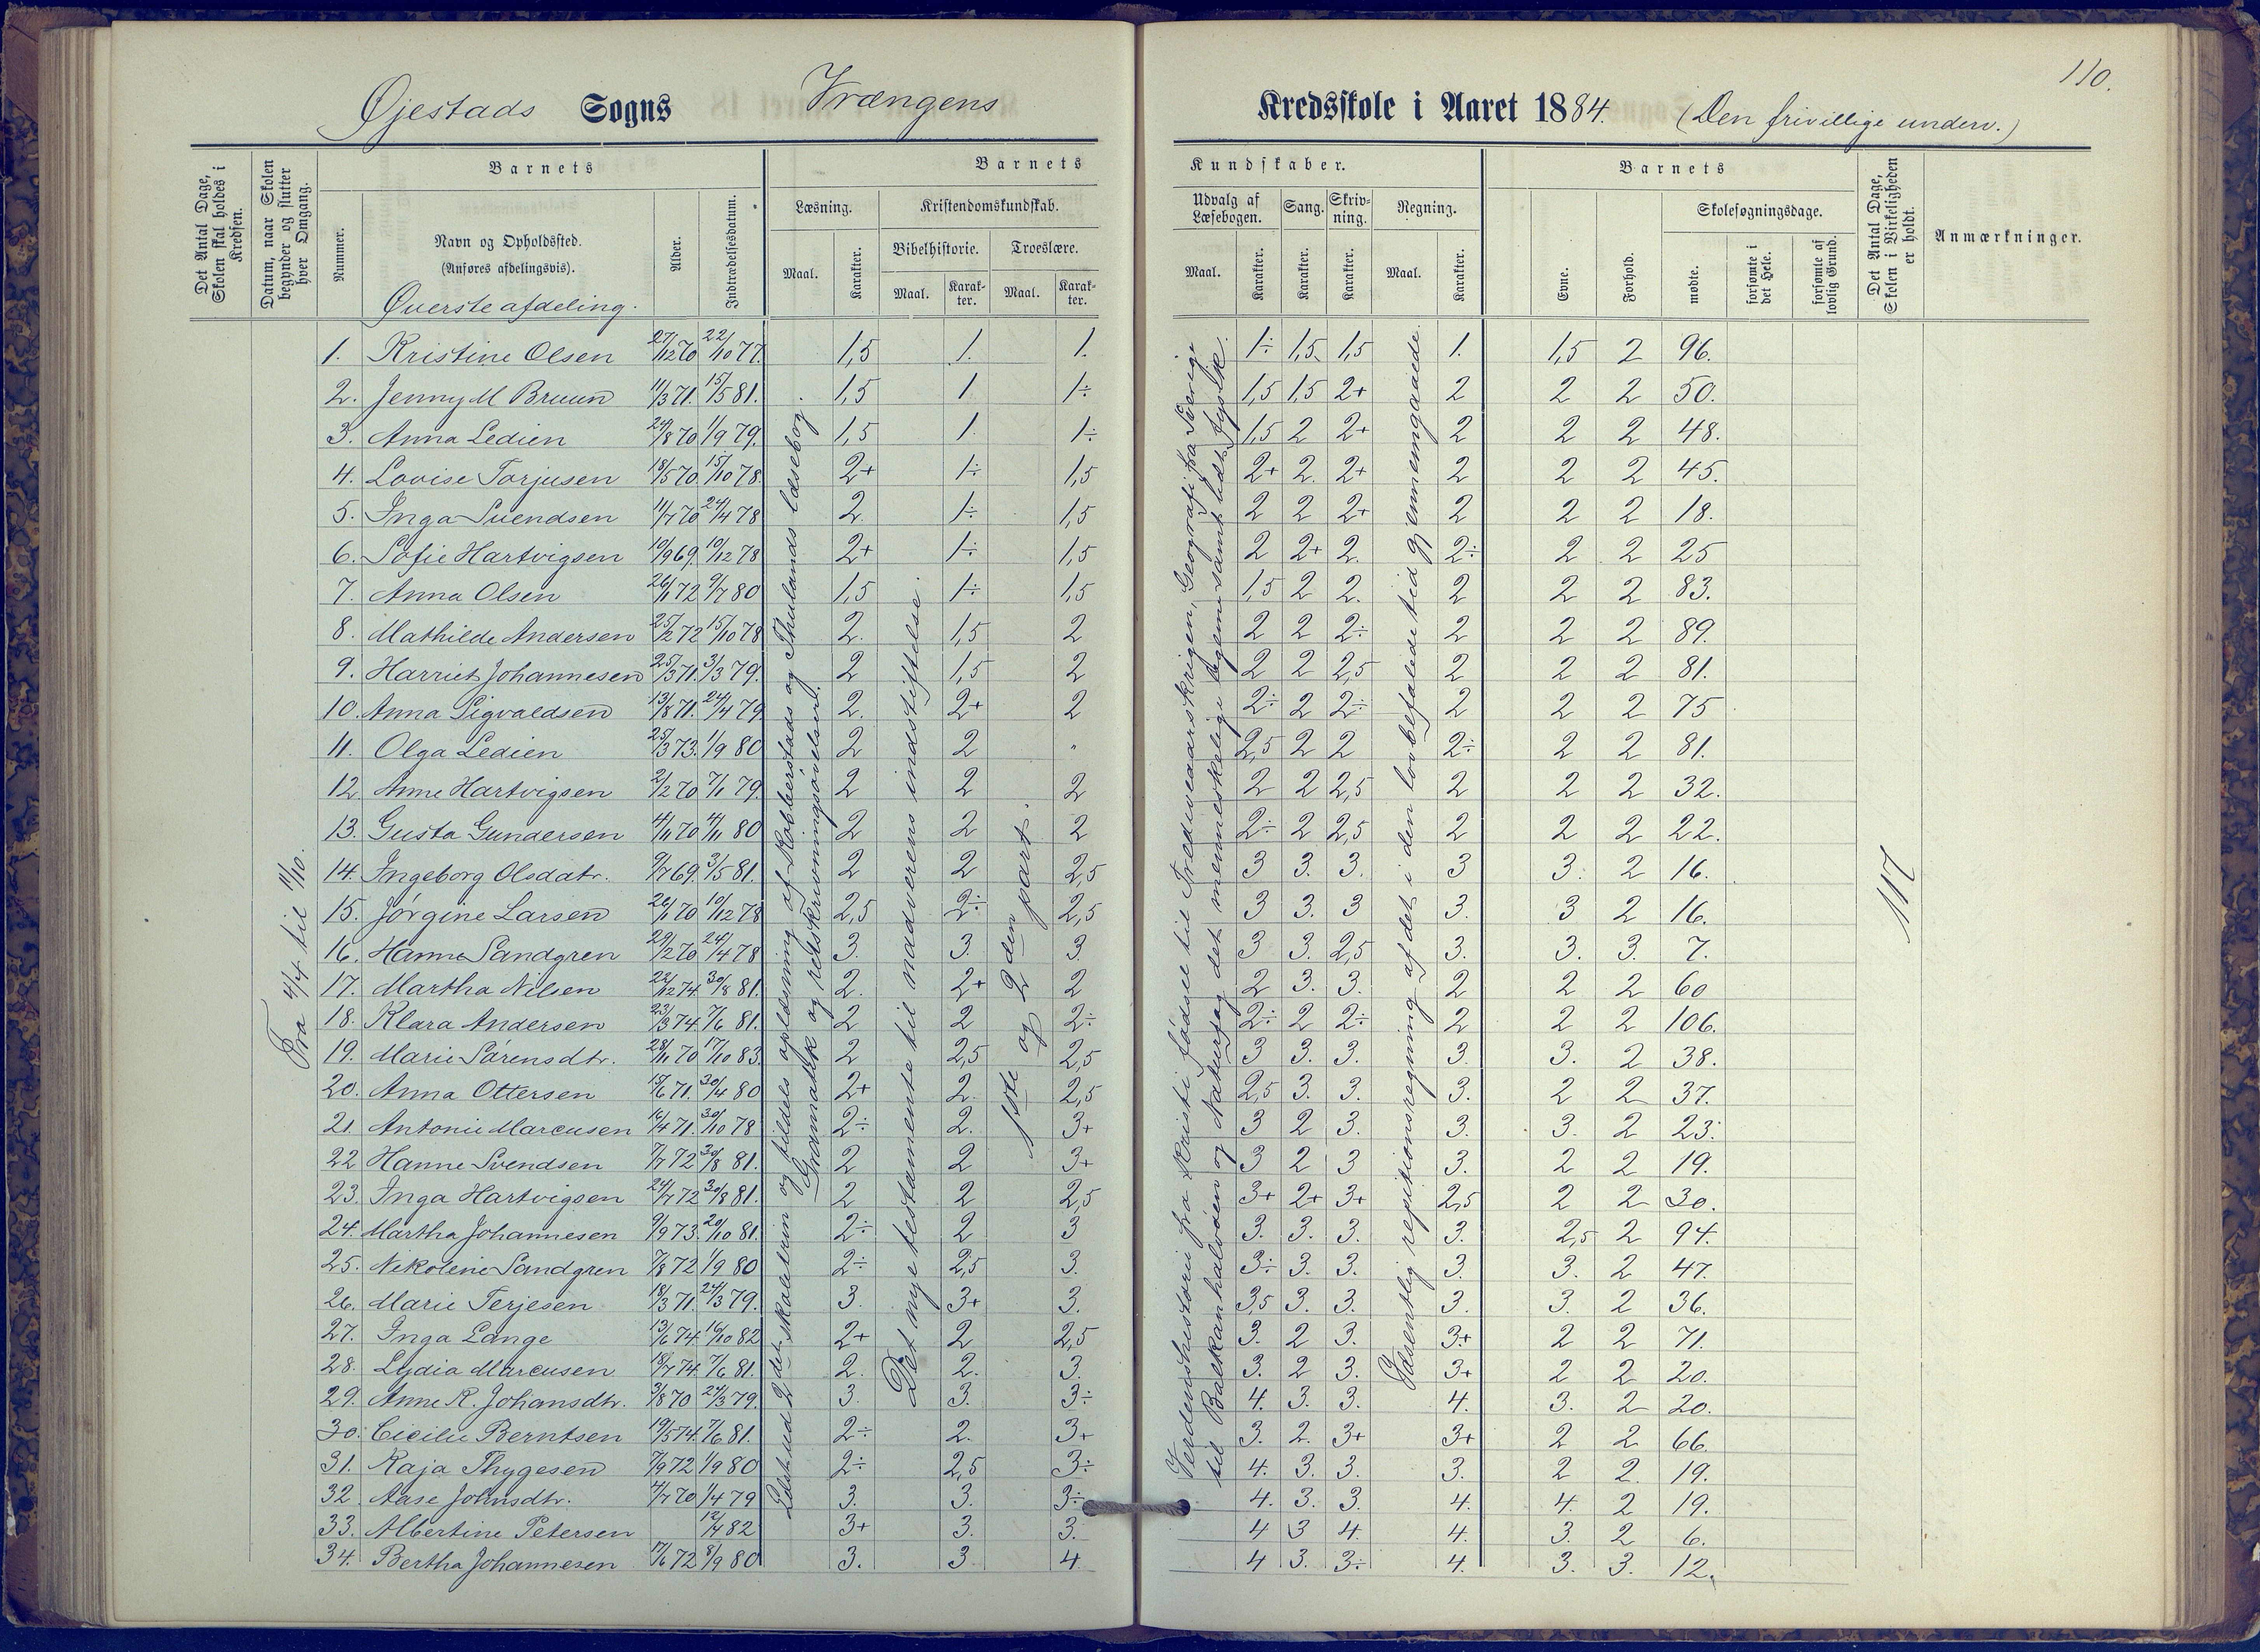 110.
Øjestads Sogns Vrængens Kredsskole i Aaret 1884. (Den frivillige underv.)
Det Antal Dage, Skolen skal holdes i Kredsen.
Datum, naar Skolen begynder og slutter hver Omgang.
Barnets
Nummer.
Navn og Opholdssted.
(Anføres afdelingsvis).
Øverste afdeling.
Alder.
Indtrædelsesdatum.
Barnets Kundskaber.
Læsning.
Maal.
Karakter.
Kristendomskundskab.
Bibelhistorie.
Maal.
Karakter.
Troeslære.
Maal.
Karakter.
Udvalg af Læsebogen.
Maal.
Karakter.
Sang.
Karakter.
Skrivning.
Karakter.
Regning.
Maal.
Karakter.
Barnets
Evne.
Forhold.
Skolesøgningsdage.
mødte.
forsømte i det Hele.
forsømte af lovlig Grund.
Det Antal Dage, Skolen i Virkeligheden er holdt.
Anmærkninger.
1. Kristine Olsen 27/12 70 22/10 77. 1,5 1. 1. 1÷ 1,5 1,5 1. 1,5 2 96.
2. Jenny M Bruun 11/3 71. 15/5 81. 1,5 1 1÷ 1,5 1,5 2+ 2 2 2 50.
3. Anna Ledien 24/8 70 1/9 79. 1,5 1. 1÷ 1,5 2 2+ 2 2 2 48.
4. Lovise Torjusen 18/5 70. 15/10 78. 2+ 1÷ 1,5 2+ 2. 2+ 2 2 2 45.
5. Inga Svendsen 11/7 70 24/4 78 2. 1÷ 1,5 2 2 2+ 2 2 2 18.
6. Sofie Hartvigsen 10/9 69. 10/12 78 2+ 1÷ 1,5 2 2+ 2. 2÷ 2 2 25
7. Anna Olsen 26/1 72 9/7 80 1,5 1÷ 1,5 1,5 2 2. 2 2 2 83.
8. Mathilde Andersen 25/2 72 15/10 78 2. 1,5 2 2 2 2÷ 2 2 2 89.
9. Harriet Johannesen 25/3 71. 3/3 79. 2 1,5 2 2 2 2,5 2 2 2 81.
10. Anna Sigvaldsen 13/8 71. 24/4 79 2. 2+ 2 2÷ 2 2÷ 2 2 2 75
11. Olga Ledien 25/3 73. 1/9 80 2 2 " 2,5 2 2 2÷ 2 2 81.
12. Anne Hartvigsen 2/2 70 7/1 79. 2 2 2 2 2 2,5 2 2 2 32.
13. Gusta Gundersen 4/11 70 4/11 80 2 2 2 2÷ 2 2,5 2 2 2 22.
14. Ingeborg Olsdatr. 9/7 69. 3/5 81. 2 2 2,5 3 3. 3. 3 3. 2 16.
15. Jørgine Larsen 26/1 70 10/12 78 2,5 2÷ 2,5 3 3. 3 3. 3 2 16.
16. Hanna Sandgren 29/2 70 24/4 78 3. 3. 3. 3 3. 2,5 3. 3. 3. 7.
17. Martha Nilsen 22/12 74. 30/8 81. 2. 2+ 2 2 3. 3. 2 2 2 60
18. Klara Andersen 23/3 74. 7/6 81. 2 2 2÷ 2÷ 2 2÷ 2 2 2 106.
19. Marie Sørensdtr. 28/11 70 17/10 83. 2 2,5 2,5 3 3. 3. 3. 3. 2 38.
20. Anna Ottersen 15/6 71. 30/4 80 2+ 2. 2,5 2,5 3. 3. 3. 2 2 37.
21. Antonie Marcusen 16/4 71. 30/10 78 2÷ 2. 3+ 3 2 3. 3. 3. 2 23.
22 Hanne Svendsen 7/7 72 30/8 81. 2 2 3+ 3 2 3 3. 2 2 19.
23. Inga Hartvigsen 24/7 72 30/8 81. 2 2 2,5 3+ 2+ 3+ 2,5 2 2 30.
24. Martha Johannesen 9/9 73. 20/10 81. 2÷ 2 3 3. 3. 3. 3. 2,5 2 94.
25. Nikoline Sandgren 7/8 72 1/9 80 2÷ 2,5 3. 3÷ 3. 3. 3. 3. 2 47.
26. Marie Terjesen 18/3 71. 24/3 79. 3. 3+ 3. 3,5 3. 3. 3. 3. 2 36.
27. Inga Lange 13/6 74. 16/10 82 2+ 2 2,5 3. 2 3. 3+ 2 2 71.
28. Lydia Marcusen 18/7 74. 7/6 81. 2. 2. 3. 3. 2 3. 3+ 2 2 20.
29. Anne R. Johansdtr. 3/8 70 24/3 79. 3. 3. 3÷ 4. 3. 3. 4. 3. 2 20.
30. Cicilie Berntsen 19/5 74. 7/6 81. 2÷ 2. 3+ 3. 2. 3+ 3+ 2 2 66.
31. Kaja Thygesen 7/9 72 1/9 80 2÷ 2,5 3÷ 4. 3. 3. 3. 2 2. 19.
32 Aase Johnsdtr. 4/7 70 1/4 79 3. 3. 3÷ 4. 3. 3. 4. 4. 2 19.
33. Albertine Petersen 12/4 82 3+ 3. 3. 4 3 4. 4. 3. 2 6.
34. Bertha Johannesen 17/6 72 8/9 80 3. 3 4 4 3. 3÷ 4. 3. 3. 12.
Fra 4/4 til 11/10.
2det skoletrin og tildels oplæsning af Robberstads og Thulands læsebog.
Gramatik og retskrivningsøvelser.
Det nye testamente til nadverens indstiftelse.
1ste og 2den part.
Verdenshistorie fra Kristi fødsel til Trediveaarskrigen, Geografi fra Sverige
til Balkanhalvøen og Naturfag det menneskelige legem samt lidt fysik.
Væsentlig repititionsregning af det i den lovbefalede tid gjennemgaaede.
117